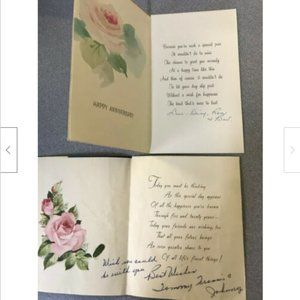 HAPPY ANNIVERSARY
Because you're such a special pair
It wouldn't do to miss
The chance to greet you warmly
At a happy time like this
And then of course it wouldn't do
To let your day slip past
Without a wish for happiness
The kind that's sure to last
Today you must be thinking
As this special day appears
Of all the happiness you've known
Through five and twenty years
Today your friends are wishing too
That all your future brings
An even greater share to you
Of all life's finest things!
Wish we could
be with you
Best Wishes
Tommy
Johnny